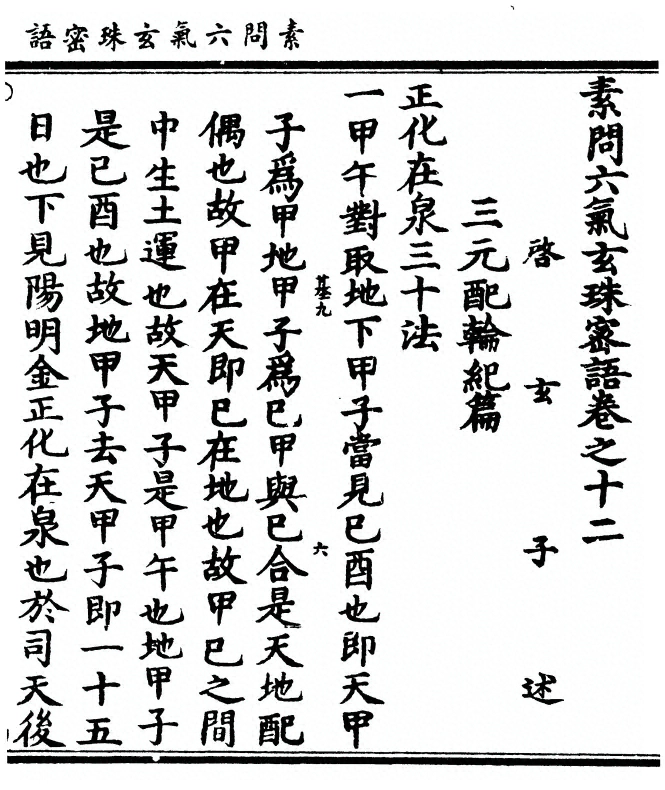 素問六氣玄珠密語
素問六氣玄珠密語卷之十二
啓玄子述
三元配輪紀篇
正化在泉三十法
一甲午對取地下甲子當見巳酉也即天甲
九 六
子爲甲地甲子爲巳甲與巳合是天地配
偶也故甲在天即巳在地也故甲巳之間
中生土運也故天甲子是甲午也地甲子
是巳酉也故地甲子去天甲子即一十五
日也下見陽明金正化在泉也於司天後